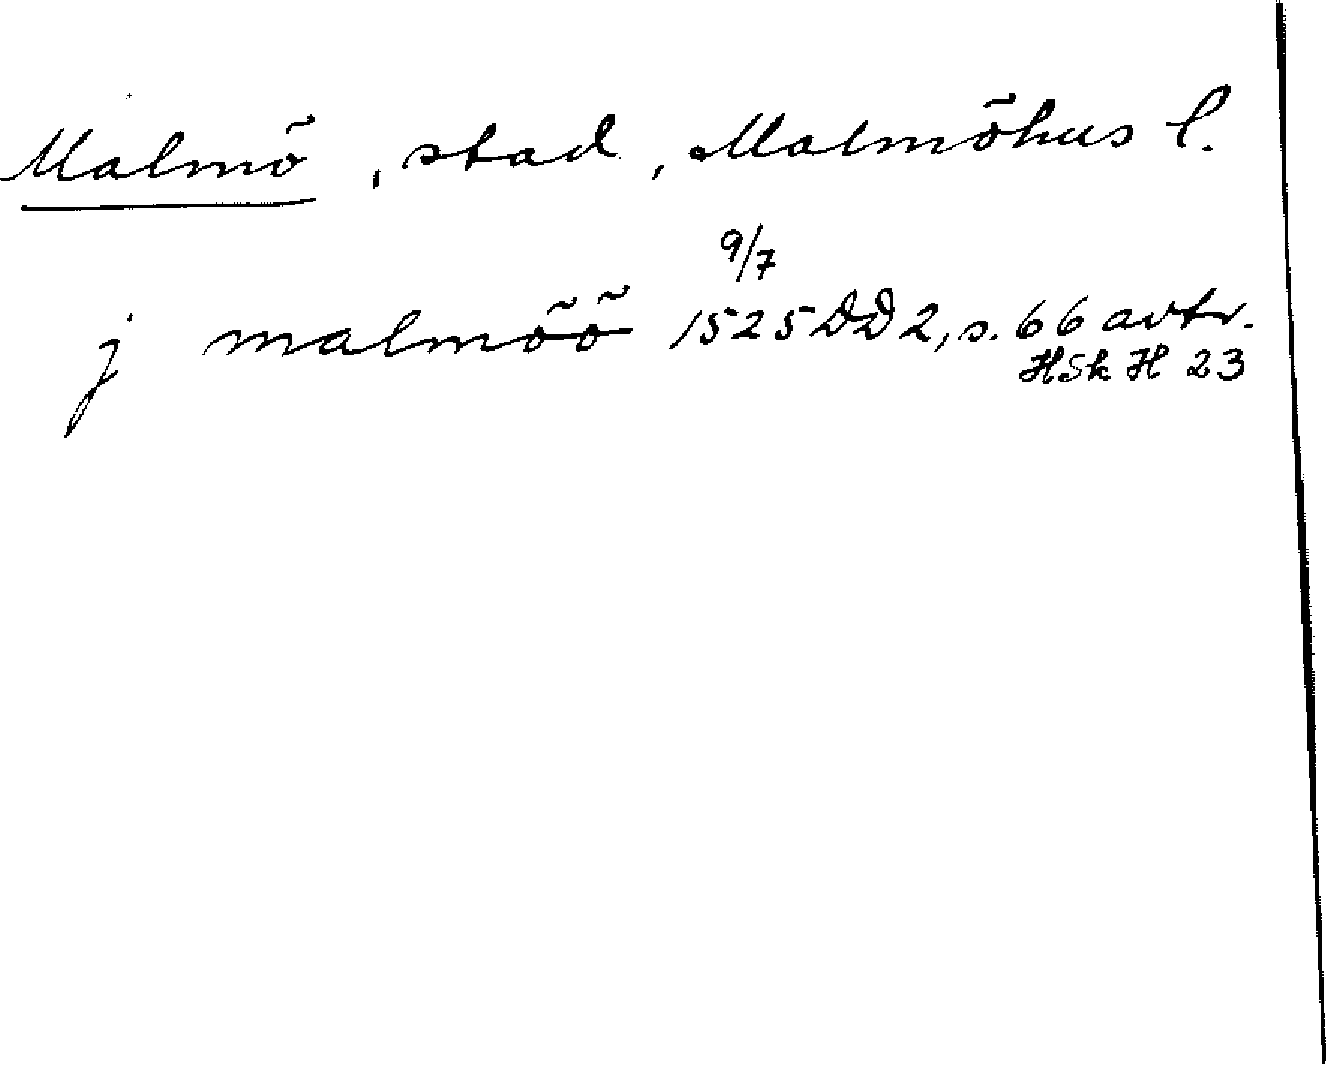 Malmö, stad, Malmöhus l.
9/7
j malmöö 1525 DD 2, s. 66 avtr.
HSk H 23